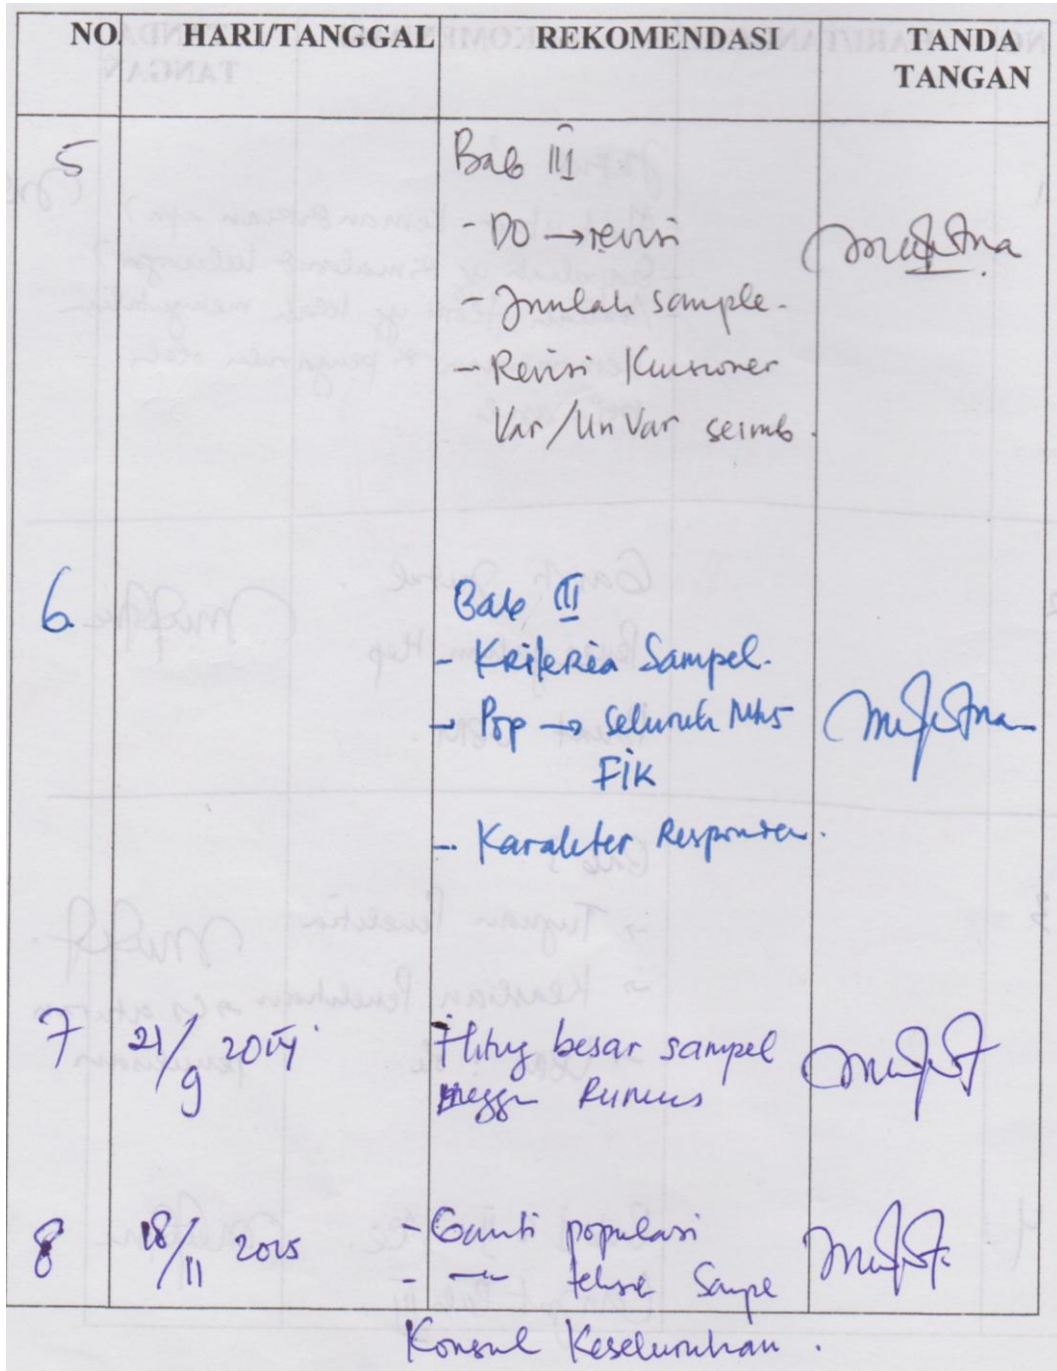 NO. HARI/TANGGAL REKOMENDASI TANDA TANGAN
5 Bab III
- DO → revisi
- Jumlah sample.
- Revisi Kuisioner
Var/UnVar seimb.
6 Bab III
- Kriteria Sampel.
→ Pop → Seluruh Mhs
FIK
- Karakter Responden.
7 21/9 Hitung besar sampel
Rumus
8 18/11 2015 - Ganti populasi
- Sampel
Konsul Keseluruhan.